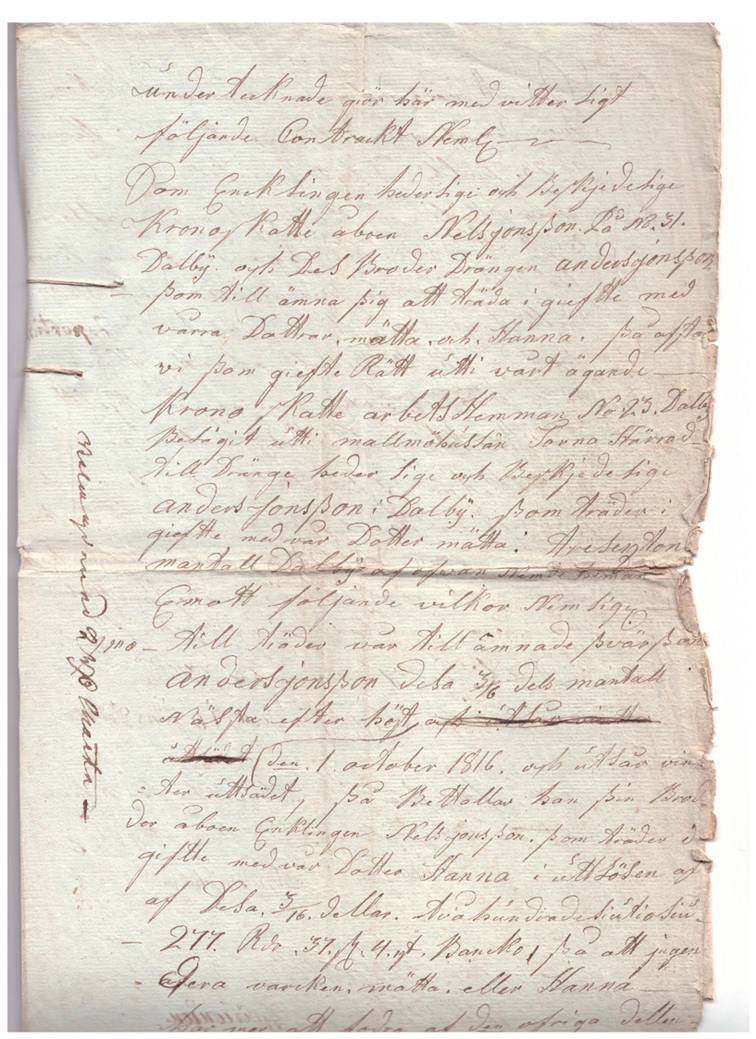 under tecknade giör här med vitter ligt
följande Contrackt Neml
Dom Encklingen hederlige och Beskjedelige
Krono skatte åboen Nelsjonsson. På No. 31.
Dalbÿ. och Des Broder Drängen andersjonsson
som till ämna sig att träda i giefte med
varra Dottrar, mätta, och, Hanna. så
vi som giefte Rätt utti vårt ägande
Krono skatte arbets Hemman No 23. Dalbÿ
Belägit utti mallmöhuslän Torna Härrad
till Dränge heder lige och Beskjedelige
andersjonsson i Dalbÿ. som träder i
giefte med vår Dotter mätta: tresexton
mantall Dalbÿ af ofvan Nemde Heman
Emott följande vilkor Nemlige
1mo - till träder vår till ämnade svärson
andersjonsson desa 3/16 dels mantall
Nästa efter höst
(den 1. october 1816. och utsår vin
ter uttsädet, så Bettallar han sin Bro
der åboen Enklingen Nelsjonsson. som träder i
giftte med vår Dotter Hanna i uttlösen af
af Desa. 3/16. dellar. tvåhundradesiutiosiu
277. Rdr. 37. s. 4. rst. Bancko, så att ingen
dera varcken. mätta. eller Hanna
har mer att fodra af den öfriga dellen